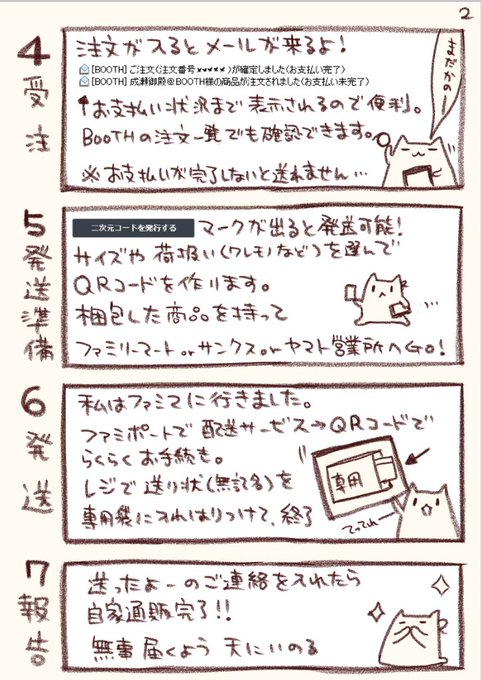 2
4 受注
注文が入るとメールが来るよ!
[BOOTH] ご注文(注文番号×××××)が確定しました(お支払い完了)
[BOOTH] 成瀬御殿@BOOTH様の商品が注文されました(お支払い未完了)
↑お支払い状況まで表示されるので便利。
BOOTHの注文一覧でも確認できます。
※お支払いが完了しないと送れません…
まだかのー
5 発送準備
二次元コードを発行する マークが出ると発送可能!
サイズや荷扱い(ワレモノなど)を選んで
QRコードを作ります。
梱包した商品を持って
ファミリーマートorサンクスorヤマト営業所へGO!
6 発送
私はファミマに行きました。
ファミポートで配送サービス→QRコードで
らくらくお手続き。
レジで送り状(無記名)を
専用袋に入れはりつけて、終了
専用
てってれー
7 報告
送ったよーのご連絡を入れたら
自家通販完了!!
無事届くよう天にいのる